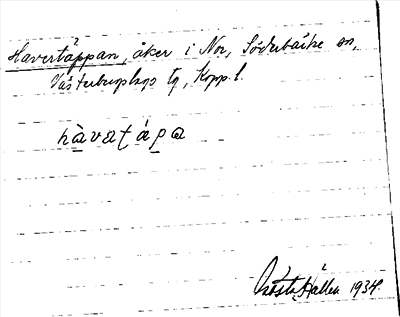 Havertäppan, åker i Nor, Söderbärke sn,
Västerbergslags tg, Kopp.l.
hàvatápa
Gösta Hällen 1934.